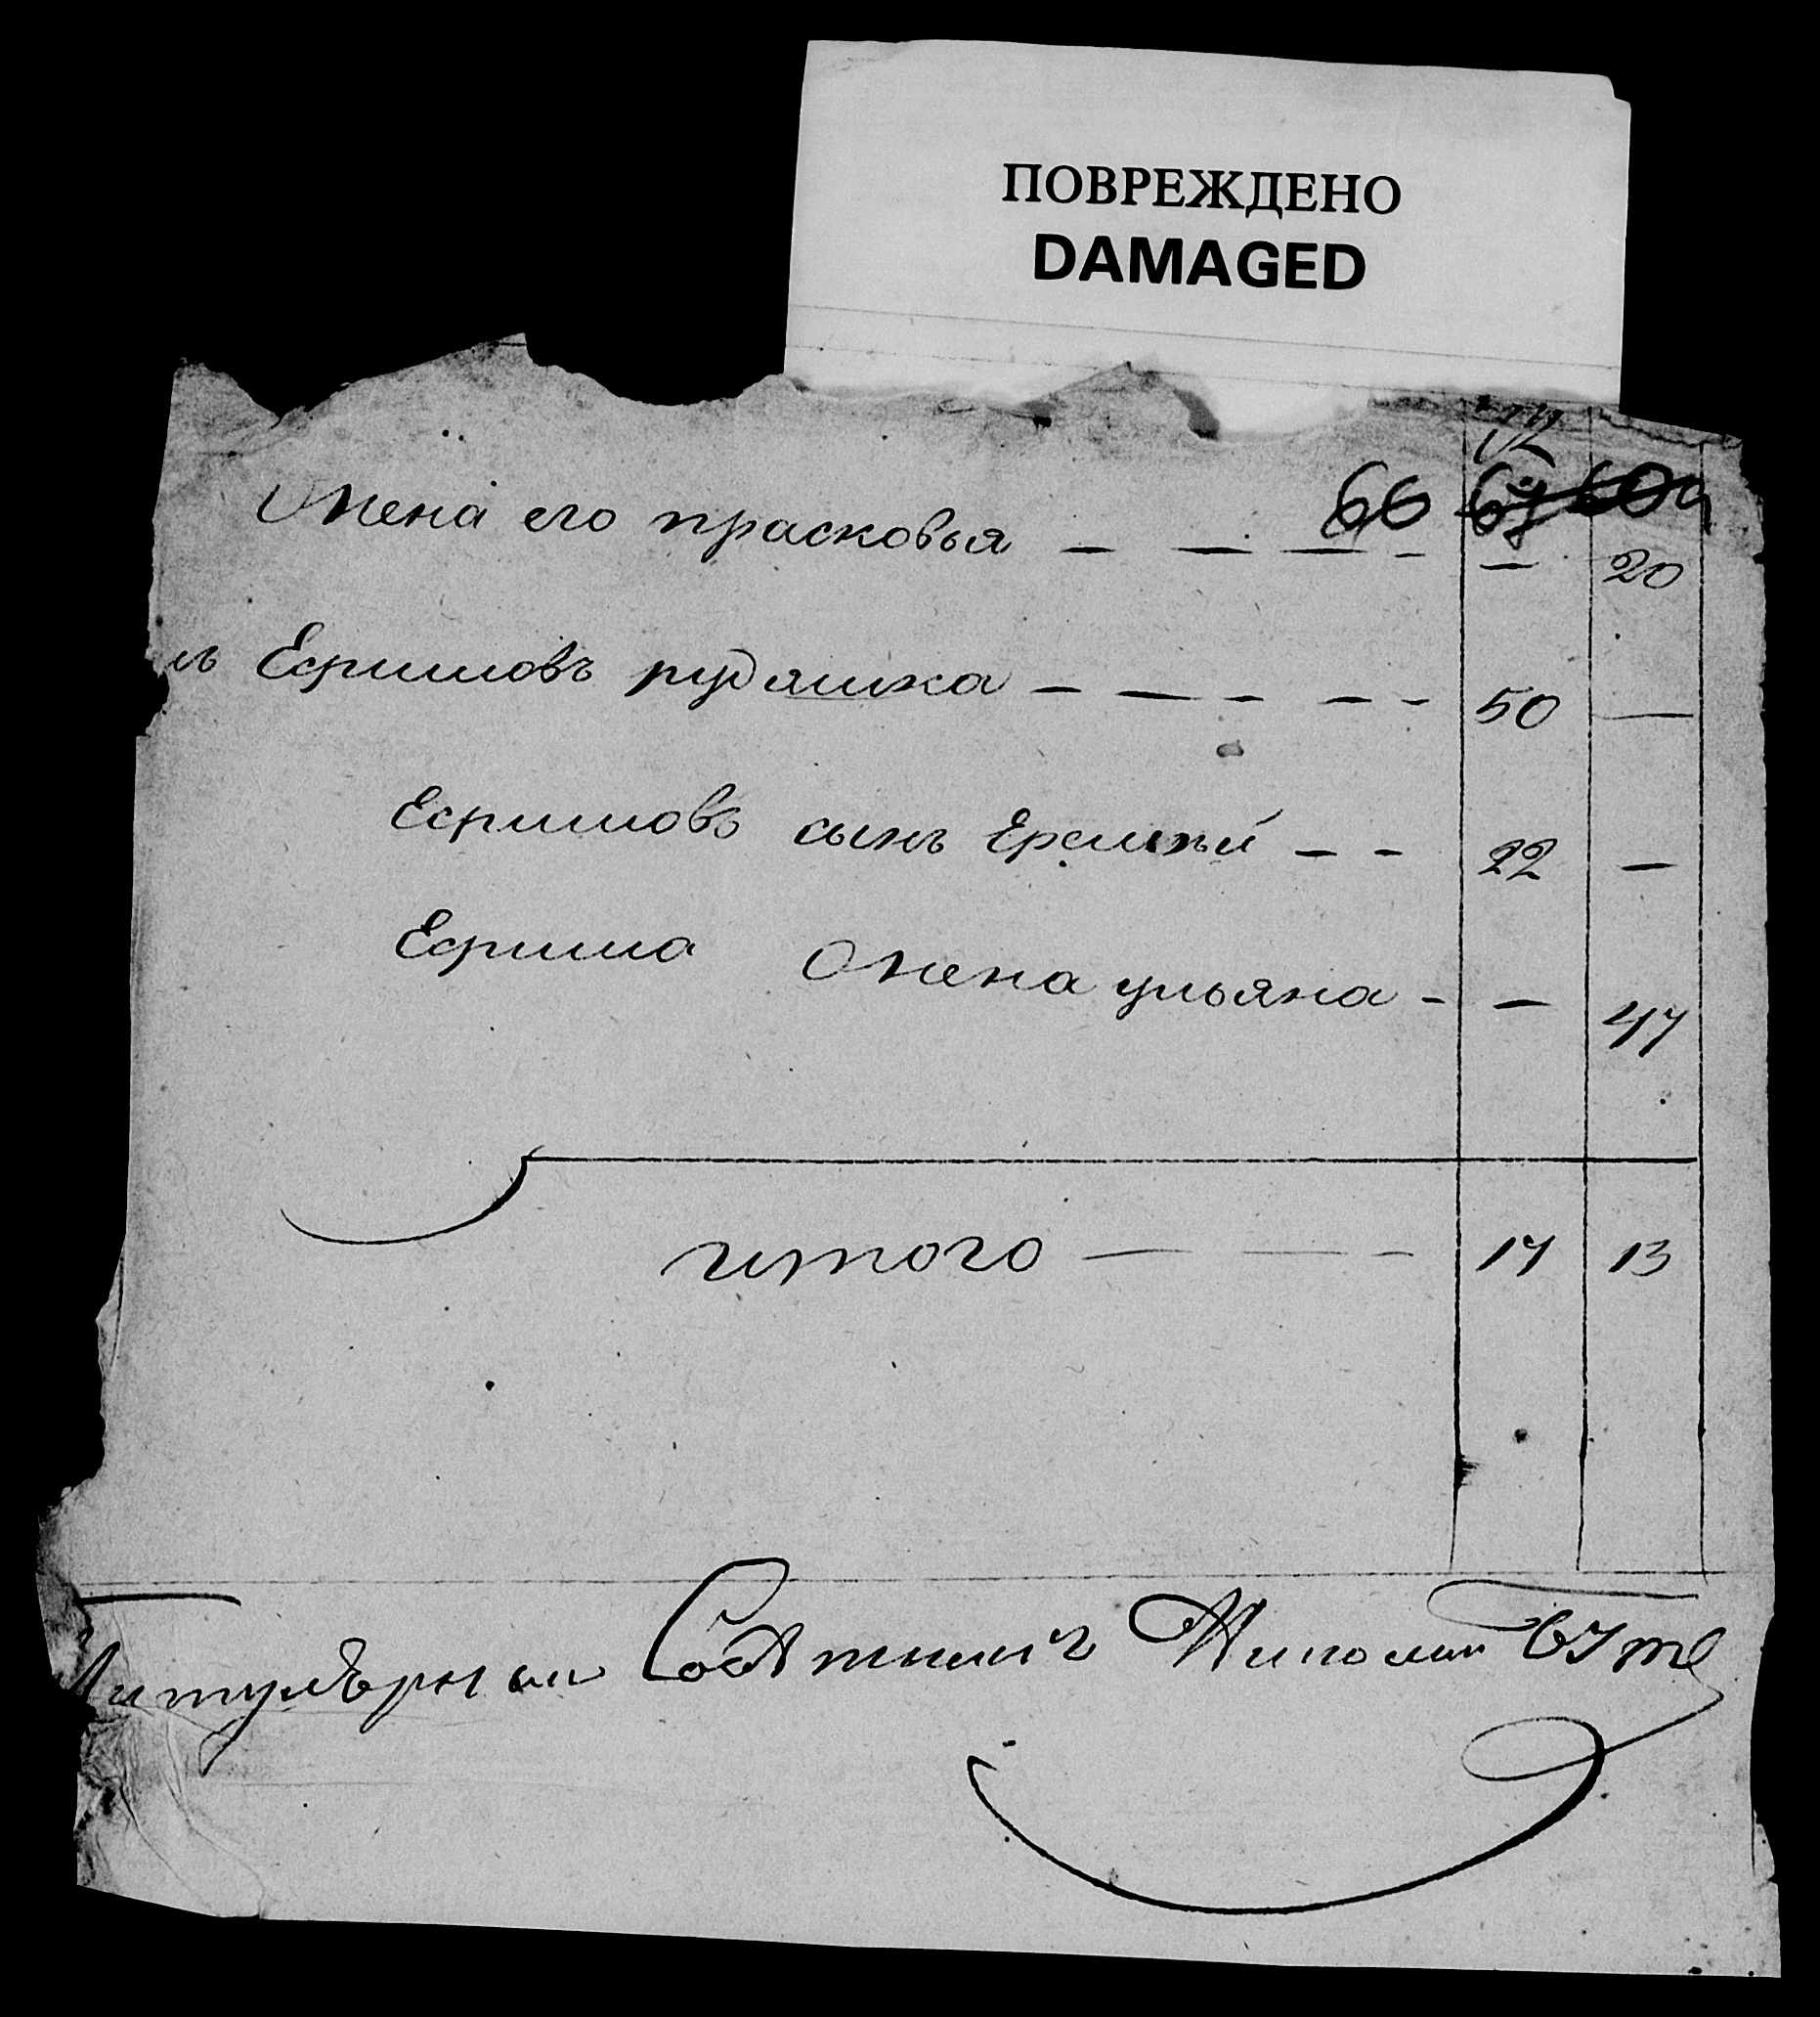 ПОВРЕЖДЕНО
DAMAGED
66 67 609
Жена его прасковья — — — - — 20
ъ Ефимовъ рудяшка — — - - - 50 —
Ефимовъ сынъ Ермей - - 22 —
Ефима Жена ульяна - — 47
итого — — - 17 13
Титулярный Совѣтникъ